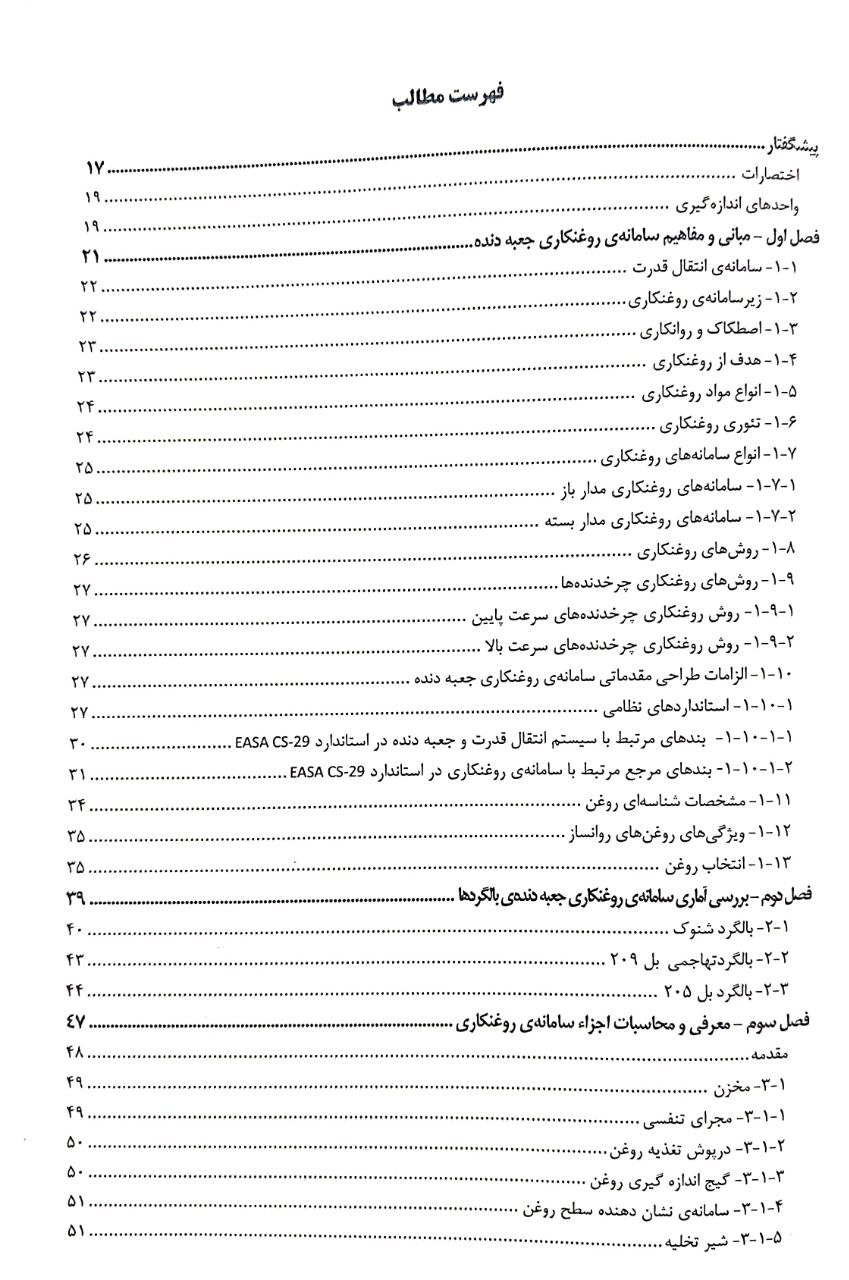 فهرست مطالب
پیشگفتار ........ ۱۷
اختصارات ........ ۱۹
واحدهای اندازه‌گیری ........ ۱۹
فصل اول - مبانی و مفاهیم سامانه‌ی روغنکاری جعبه دنده ........ ۲۱
۱-۱- سامانه‌ی انتقال قدرت ........ ۲۲
۱-۲- زیرسامانه‌ی روغنکاری ........ ۲۲
۱-۳- اصطکاک و روانکاری ........ ۲۳
۱-۴- هدف از روغنکاری ........ ۲۳
۱-۵- انواع مواد روغنکاری ........ ۲۴
۱-۶- تئوری روغنکاری ........ ۲۴
۱-۷- انواع سامانه‌های روغنکاری ........ ۲۵
۱-۷-۱- سامانه‌های روغنکاری مدار باز ........ ۲۵
۱-۷-۲- سامانه‌های روغنکاری مدار بسته ........ ۲۵
۱-۸- روش‌های روغنکاری ........ ۲۶
۱-۹- روش‌های روغنکاری چرخدنده‌ها ........ ۲۷
۱-۹-۱- روش روغنکاری چرخدنده‌های سرعت پایین ........ ۲۷
۱-۹-۲- روش روغنکاری چرخدنده‌های سرعت بالا ........ ۲۷
۱-۱۰- الزامات طراحی مقدماتی سامانه‌ی روغنکاری جعبه دنده ........ ۲۷
۱-۱۰-۱- استانداردهای نظامی ........ ۲۷
۱-۱۰-۱-۱- بندهای مرتبط با سیستم انتقال قدرت و جعبه دنده در استاندارد EASA CS-29 ........ ۳۰
۱-۱۰-۱-۲- بندهای مرجع مرتبط با سامانه‌ی روغنکاری در استاندارد EASA CS-29 ........ ۳۱
۱-۱۱- مشخصات شناسه‌ای روغن ........ ۳۴
۱-۱۲- ویژگی‌های روغن‌های روانساز ........ ۳۵
۱-۱۳- انتخاب روغن ........ ۳۵
فصل دوم - بررسی آماری سامانه‌ی روغنکاری جعبه دنده‌ی بالگردها ........ ۳۹
۲-۱- بالگرد شنوک ........ ۴۰
۲-۲- بالگردتهاجمی بل ۲۰۹ ........ ۴۳
۲-۳- بالگرد بل ۲۰۵ ........ ۴۴
فصل سوم - معرفی و محاسبات اجزاء سامانه‌ی روغنکاری ........ ۴۷
مقدمه ........ ۴۸
۳-۱- مخزن ........ ۴۹
۳-۱-۱- مجرای تنفسی ........ ۴۹
۳-۱-۲- درپوش تغذیه روغن ........ ۵۰
۳-۱-۳- گیج اندازه گیری روغن ........ ۵۰
۳-۱-۴- سامانه‌ی نشان دهنده سطح روغن ........ ۵۱
۳-۱-۵- شیر تخلیه ........ ۵۱